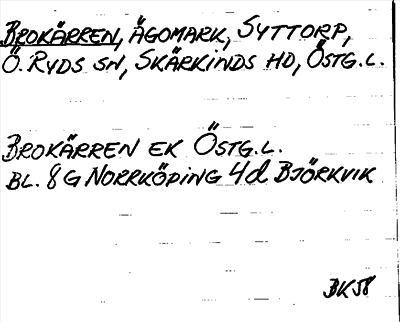 BROKÄRREN, ÄGOMARK, SYTTORP,
Ö. RYDS SN, SKÄRKINDS HD, ÖSTG.L.
BROKÄRREN EK ÖSTG.L.
BL. 8G NORRKÖPING 4d BJÖRKVIK
BK58